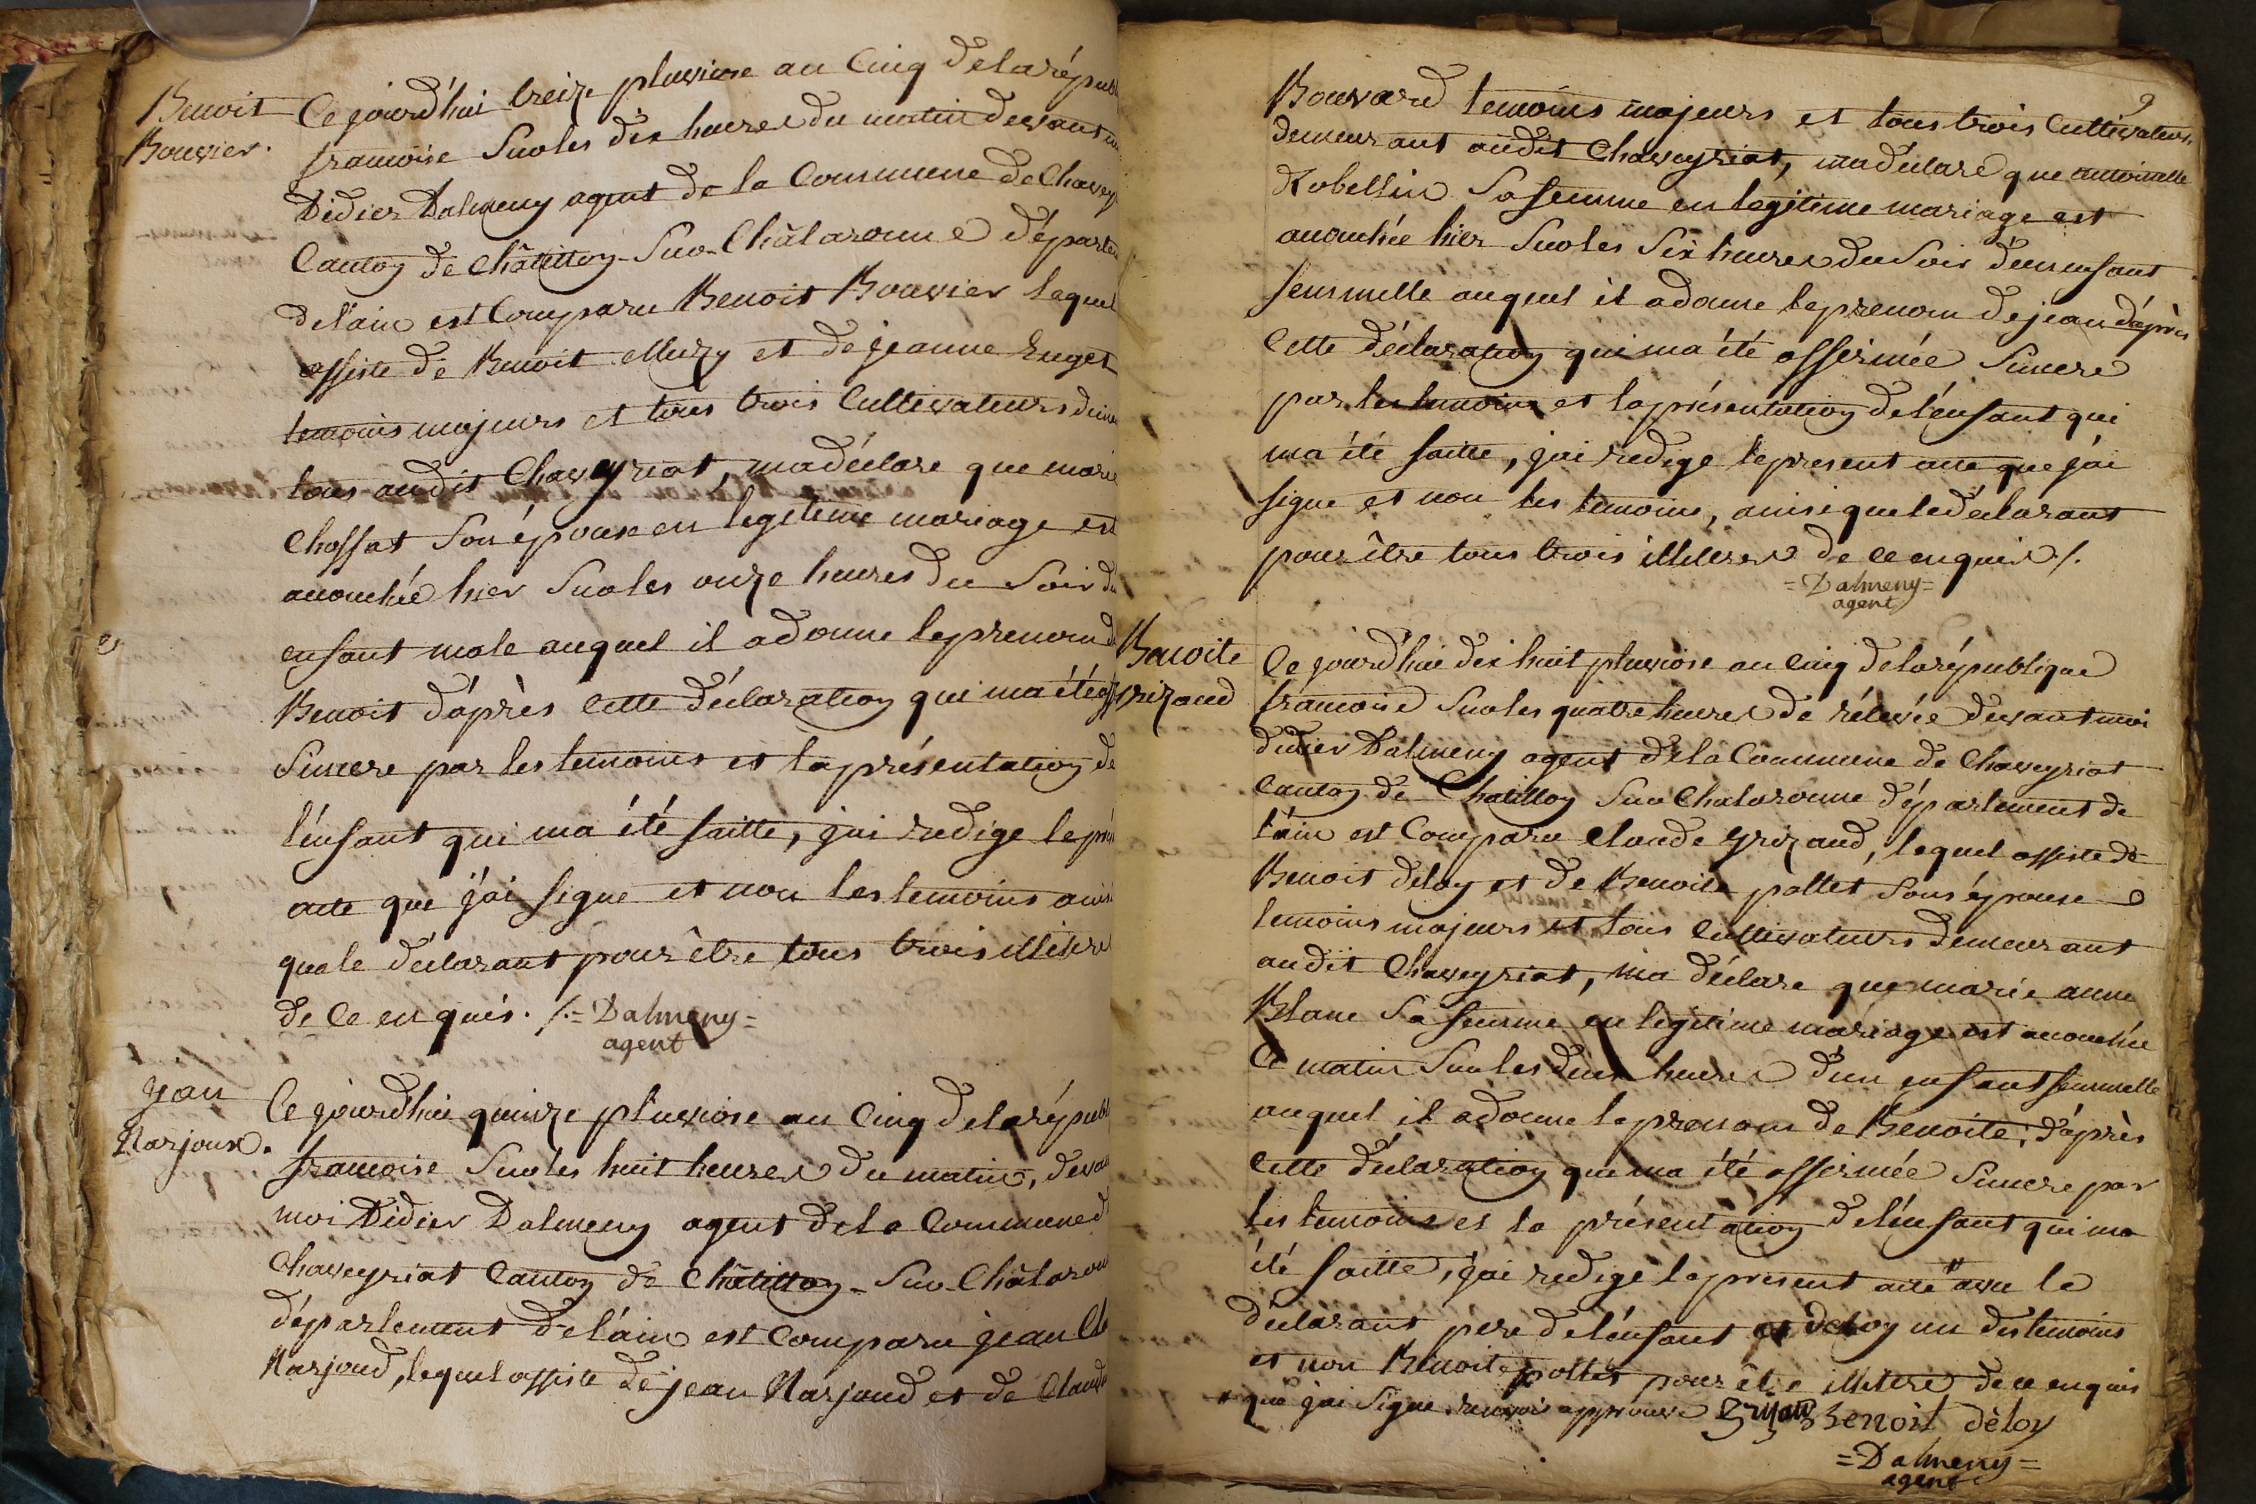 Benoit
Bouvier.
Ce jourd'hui treize pluviose an Cinq de la républ
francoise Sur les dix heures du matin devant
Didier Dalmeny agent de la Commune de Chavey
Canton de Châtillon-Sur-Châlaronne départe
de l'ain est Comparu Benoit Bouvier lequel
assisté de Benoit Muzy et de jeanne
temoins majeurs et tous trois Cultivateurs
tous audit Chaveyriat, ma déclaré que marie
Chossat Son épouse en legitime mariage est
acouchée hier Sur les onze heures du Soir d'u
enfant male auquel il a donné le prenom d
Benoit d'après Cette déclaration qui ma été aff
Sincere par les temoins et la présentation de
l'énfant qui ma été faitte, j'ai redigé le pré
acte que j'ai signé et non les temoins ainsi
que le déclarant pour être tous trois illitere
de Ce enquis. /. = Dalmeny =
agent
jean
Narjoux.
Ce jourd'hui quinze pluviose an Cinq de la républ
francoise Sur les huit heures du matin, deva
moi Didier Dalmeny agent de la Commune d
Chaveyriat Canton de Châtillon-Sur-Châlaron
département de l'ain est Comparu jean Cl
Narjoud, lequel assisté de jean Narjoud et de Claude
9
Bouvard temoins majeurs et tous trois Cultivateurs
demeurant audit Chaveyriat, ma déclaré que antoinette
Robellin Sa femme en legitime mariage est
acouchée hier Sur les Six heures du Soir d'un enfant
femmelle auquel il a donné le prenom de jean d'après
Cette déclaration qui ma été affirmée Sincere
par les temoins et la présentation de l'énfant qui
ma été faitte, j'ai redigé le present acte que j'ai
signé et non les temoins, ainsi que le déclarant
pour être tous trois illiteres de ce enquis /.
= Dalmeny =
agent
Benoite
grizaud
Ce jourd'hui dix huit pluviose an Cinq de la république
francoise Sur les quatre heures de rélevée devant moi
didier Dalmeny agent de la Commune de Chaveyriat
Canton de Chatillon Sur Chalaronne département de
l'ain est Comparu Claude grizaud, lequel assisté de
Benoit deloy et de Benoite pollet Son épouse
temoins majeurs et tous Cultivateurs demeurant
audit Chaveyriat, ma déclaré que marie anne
Blanc Sa femme en legitime mariage est acouchée
Ce matin Sur les deux heures d'un enfant femmelle
auquel il a donné le prenom de Benoite; d'après
Cette déclaration qui ma été affirmée Sincere par
les temoins et la présentation de l'énfant qui ma
été faitte, j'ai redigé le present acte # avec le
déclarant pere de l'énfant et deloy un des temoins
et non Benoite pollet pour être illitere de ce enquis
# que j'ai Signé renvoi approuvé Grizaud Benoit dèloy
= Dalmeny =
agent